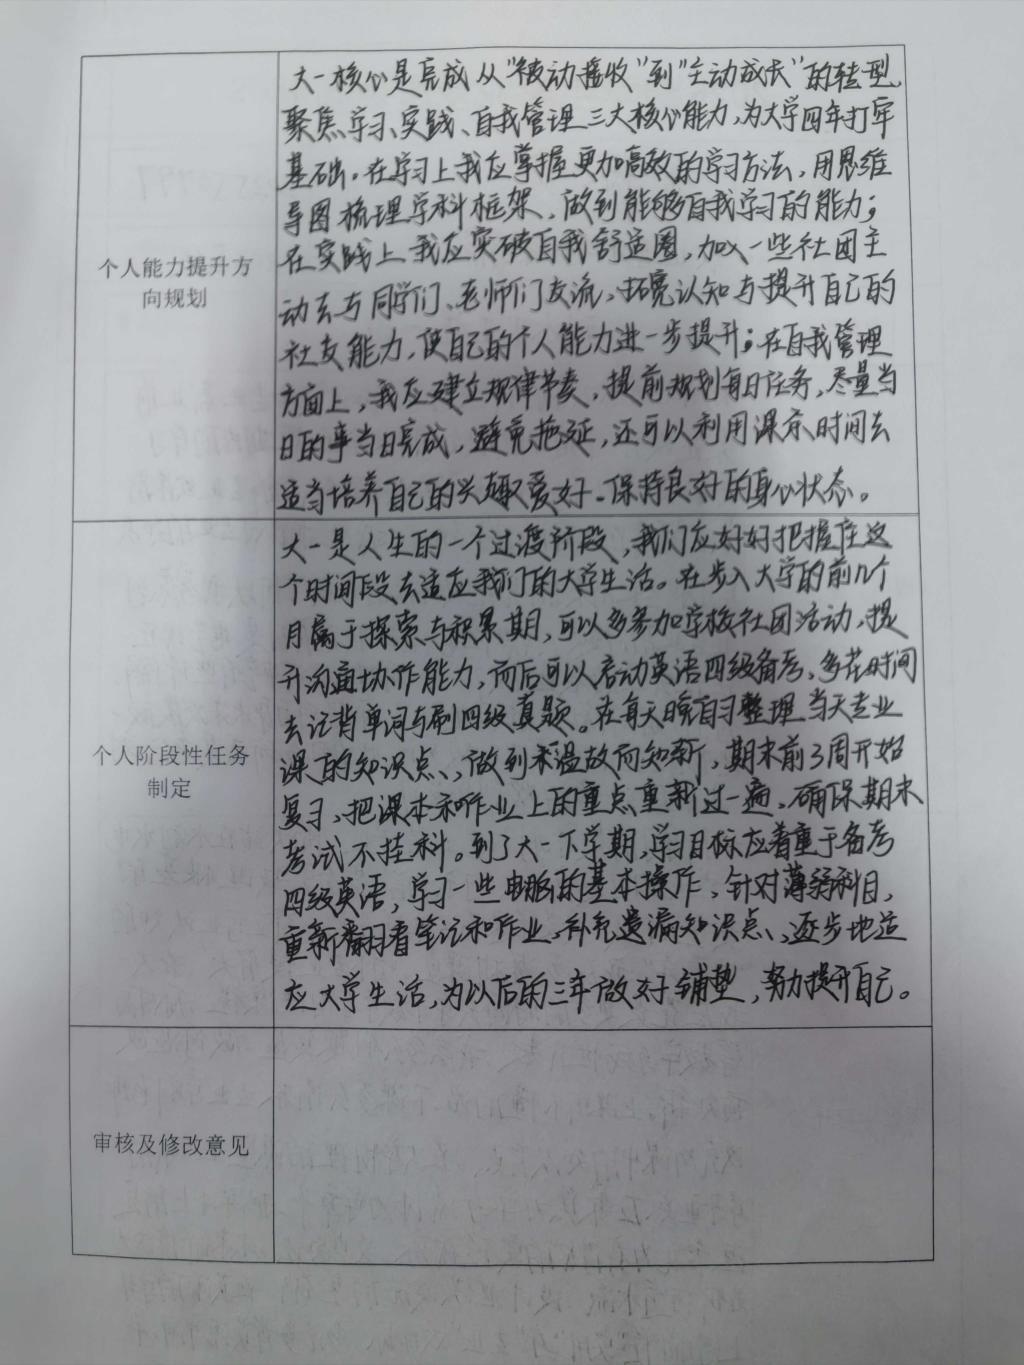 个人能力提升方
向规划
大一核心是完成从"被动接收"到"主动成长"的转型,
聚焦学习、实践、自我管理三大核心能力,为大学四年打牢
基础。在学习上我应掌握更加高效的学习方法,用思维
导图梳理学科框架,做到能够自我学习的能力;
在实践上我应突破自我舒适圈,加入一些社团主
动去与同学们、老师们交流,拓宽认知与提升自己的
社交能力,使自己的个人能力进一步提升;在自我管理
方面上,我应建立规律节奏,提前规划每日任务,尽量当
日的事当日完成,避免拖延,还可以利用课余时间去
适当培养自己的兴趣爱好。保持良好的身心状态。
个人阶段性任务
制定
大一是人生的一个过渡阶段,我们应好好把握住这
个时间段去适应我们的大学生活。在步入大学的前几个
月属于探索与积累期,可以多参加学校社团活动,提
升沟通协作能力,而后可以启动英语四级备考,多花时间
去记背单词与刷四级真题。在每天晚自习整理当天专业
课的知识点、做到温故而知新,期末前3周开始
复习,把课本和作业上的重点重新过一遍,确保期末
考试不挂科。到了大一下学期,学习目标应着重于备考
四级英语,学习一些电脑的基本操作,针对薄弱科目,
重新翻看笔记和作业,补充遗漏知识点、逐步地适
应大学生活,为以后的三年做好铺垫,努力提升自己。
审核及修改意见